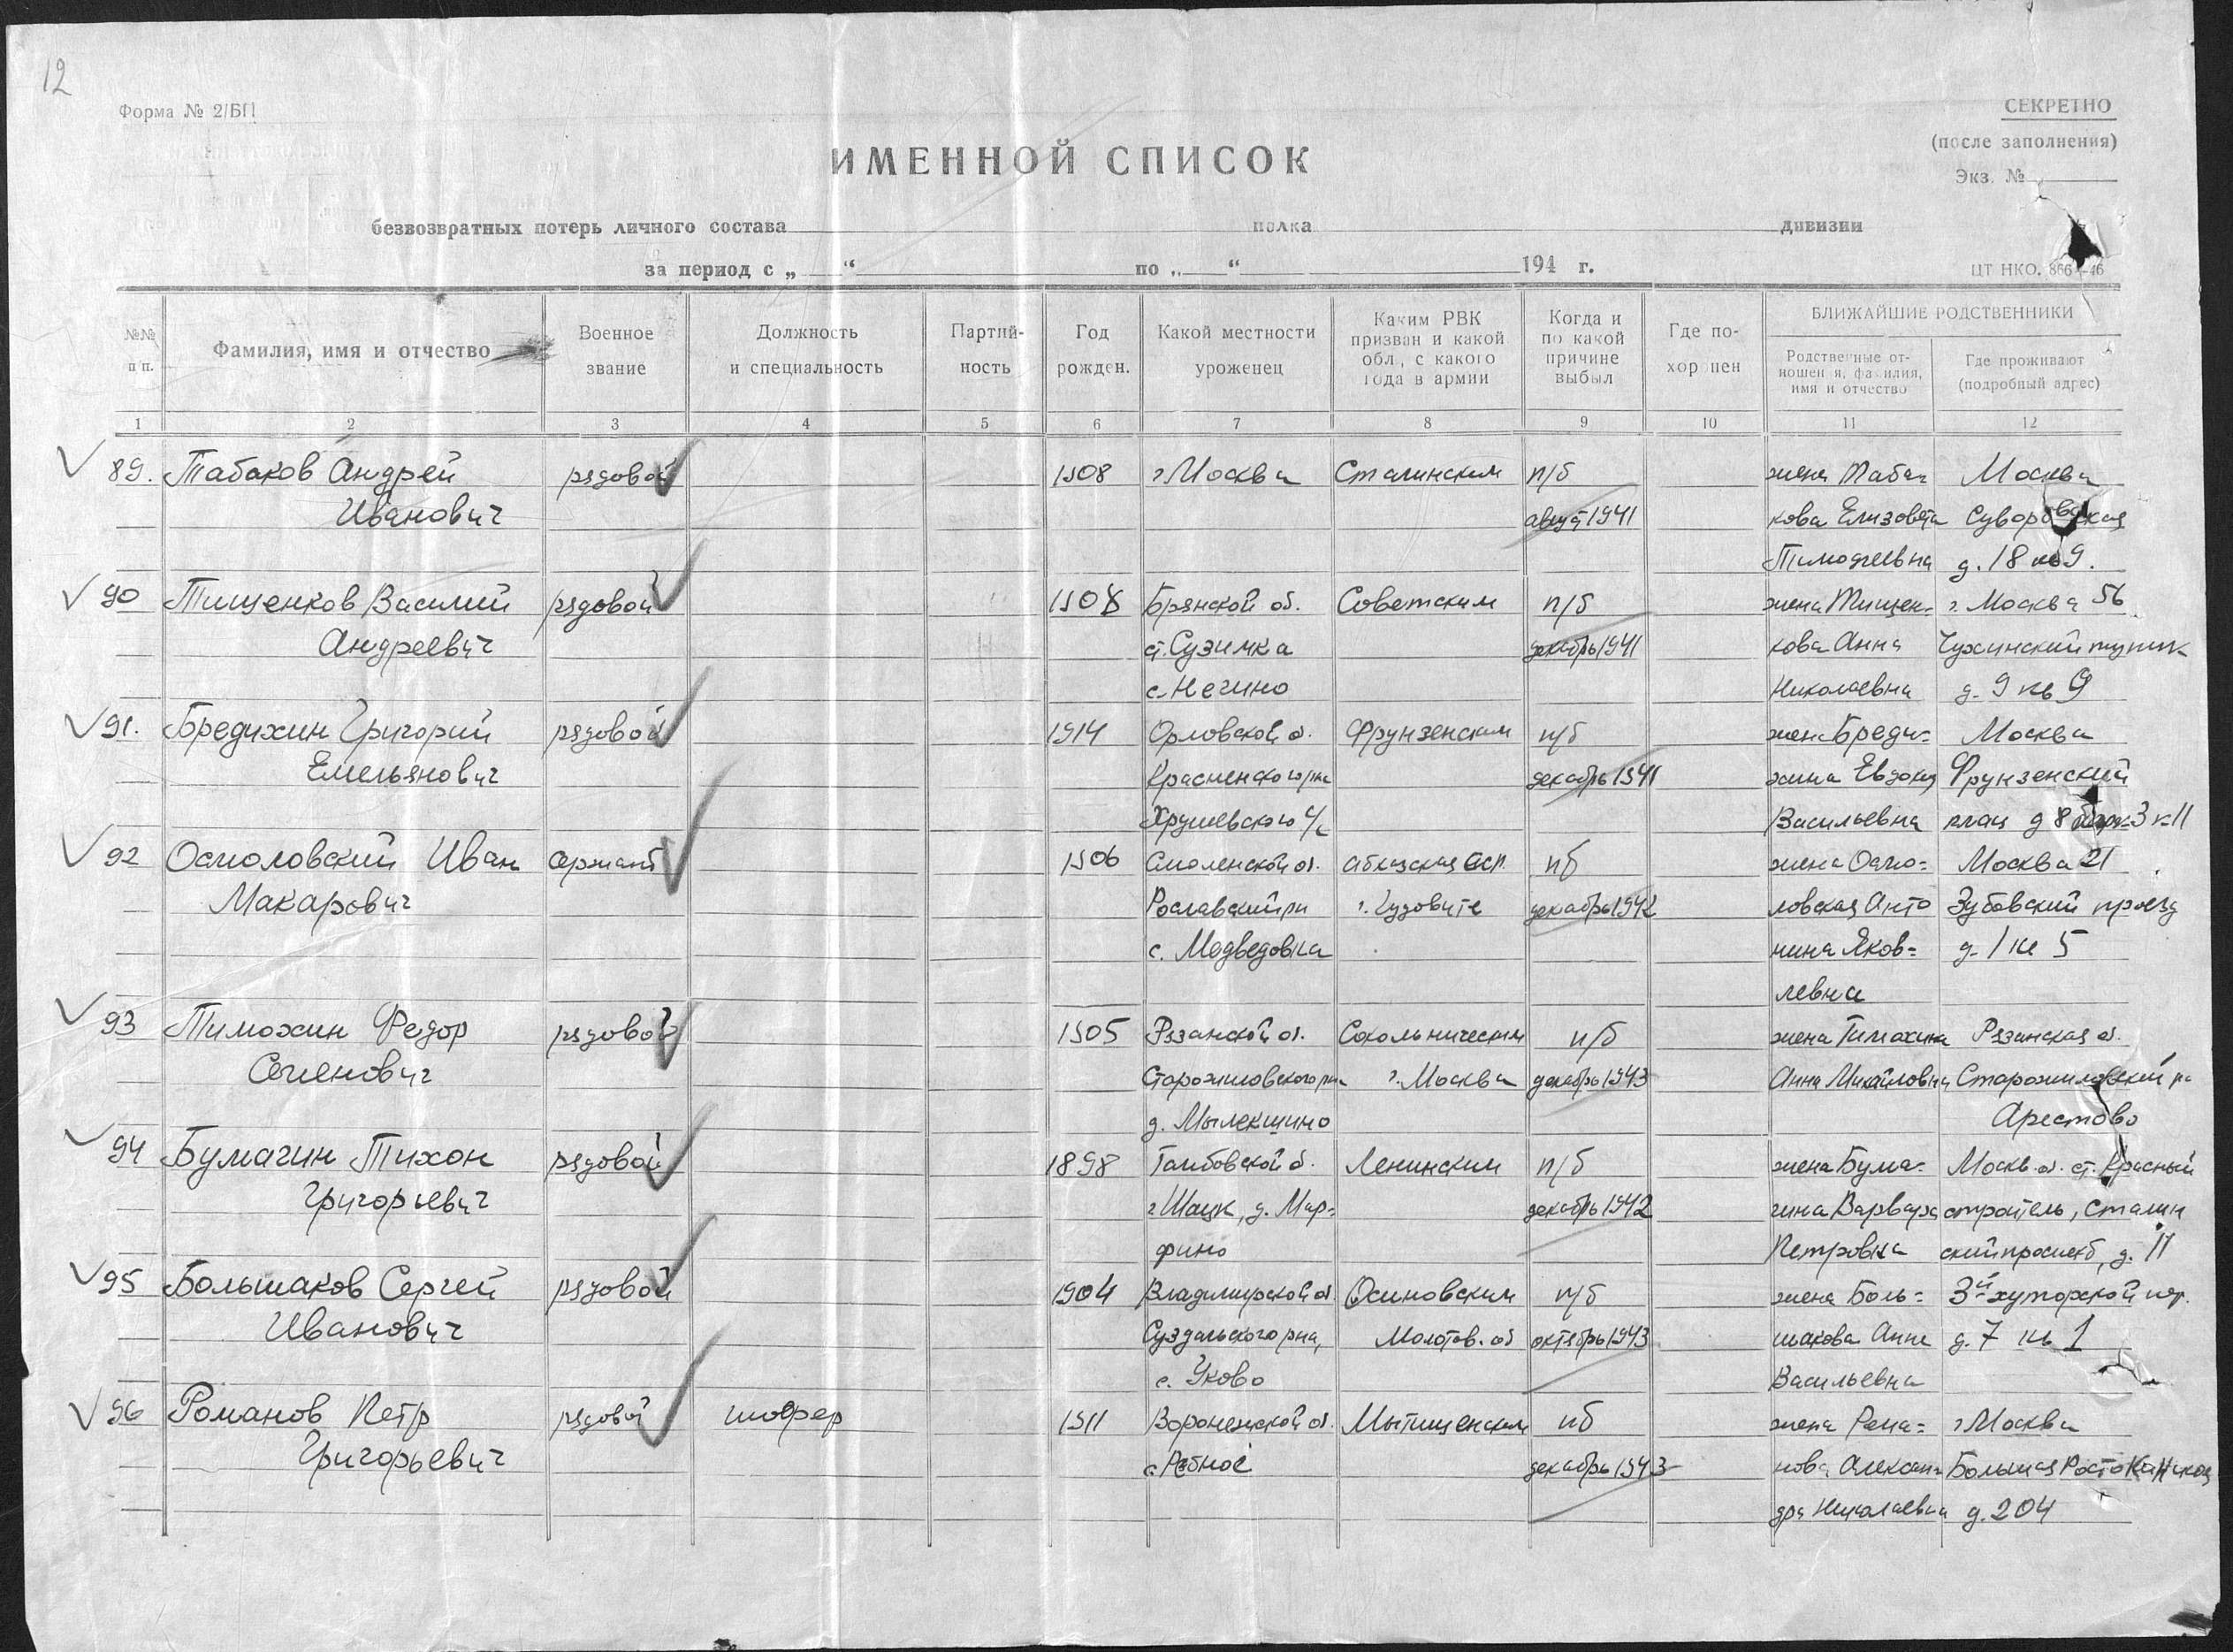 12
Форма № 2/БП
СЕКРЕТНО
(после заполнения)
Экз. №
ИМЕННОЙ СПИСОК
безвозвратных потерь личного состава полка дивизии
за период с „ “ по „ “ 194 г.
ЦТ НКО. 866 -46
№№ п/п.
Фамилия, имя и отчество
Военное звание
Должность и специальность
Партийность
Год рожден.
Какой местности уроженец
Каким РВК призван и какой обл., с какого года в армии
Когда и по какой причине выбыл
Где похоронен
БЛИЖАЙШИЕ РОДСТВЕННИКИ
Родственные отношения, фамилия, имя и отчество
Где проживают (подробный адрес)
1 2 3 4 5 6 7 8 9 10 11 12
89. Табаков Андрей рядовой 1908 г Москва Сталинским п/б жена Таба- Москва
Иванович август 1941 кова Елизовета Суворовская
Тимофеевна д. 18 кв 9.
90 Тищенков Василий рядовой 1908 Брянской об. Советским п/б жена Тищен= г. Москва 56
Андреевич ст. Сузимка декабрь 1941 кова Анна Чухинский тупик
с. Негино Николаевна д. 9 кв 9
91. Бредихин Григорий рядовой 1914 Орловской о. Фрунзенским п/б жена Бреди= Москва
Емельянович Красненского рна декабрь 1941 хина Евдокия Фрунзенский
Хрушевского с/с Васильевна плац д 8 3 к 11
92 Осмоловский Иван сержант 1906 Смоленской об. Абхазская АССР. пб жена Осмо= Москва 21
Макарович Рославский рн г. Гудовите декабрь 1942 ловская Анто Зубовский проезд
с. Медведовка нина Яков= д. 1 кв 5
левна
93 Тимохин Федор рядовой 1905 Рязанской об. Сокольническим п/б жена Тимохина Рязанская об.
Семенович Старожиловского рна г. Москва декабрь 1943 Анна Михайловна Старожиловский рн
д. Мылекшино Арестово
94 Бумагин Тихон рядовой 1898 Тамбовской о. Ленинским п/б жена Бума= Моск. об. ст. Красный
Григорьевич г Шацк, д. Мар= декабрь 1942 гина Варвара строитель, Сталин
фино Петровна ский проспект, д. 11
95 Большаков Сергей рядовой 1904 Владимирской об. Осиновским п/б жена Боль= 3й хуторской пер.
Иванович Суздальского рна, Молотов. об октябрь 1943 шакова Анна д. 7 кв 1
с. Уково Васильевна
96 Романов Петр рядовой шофер 1911 Воронежской об. Мытищенским пб жена Рома= г Москва
Григорьевич с. Репное декабрь 1943 нова Алексан= Большая Ростокинская
дра Николаевна д. 204